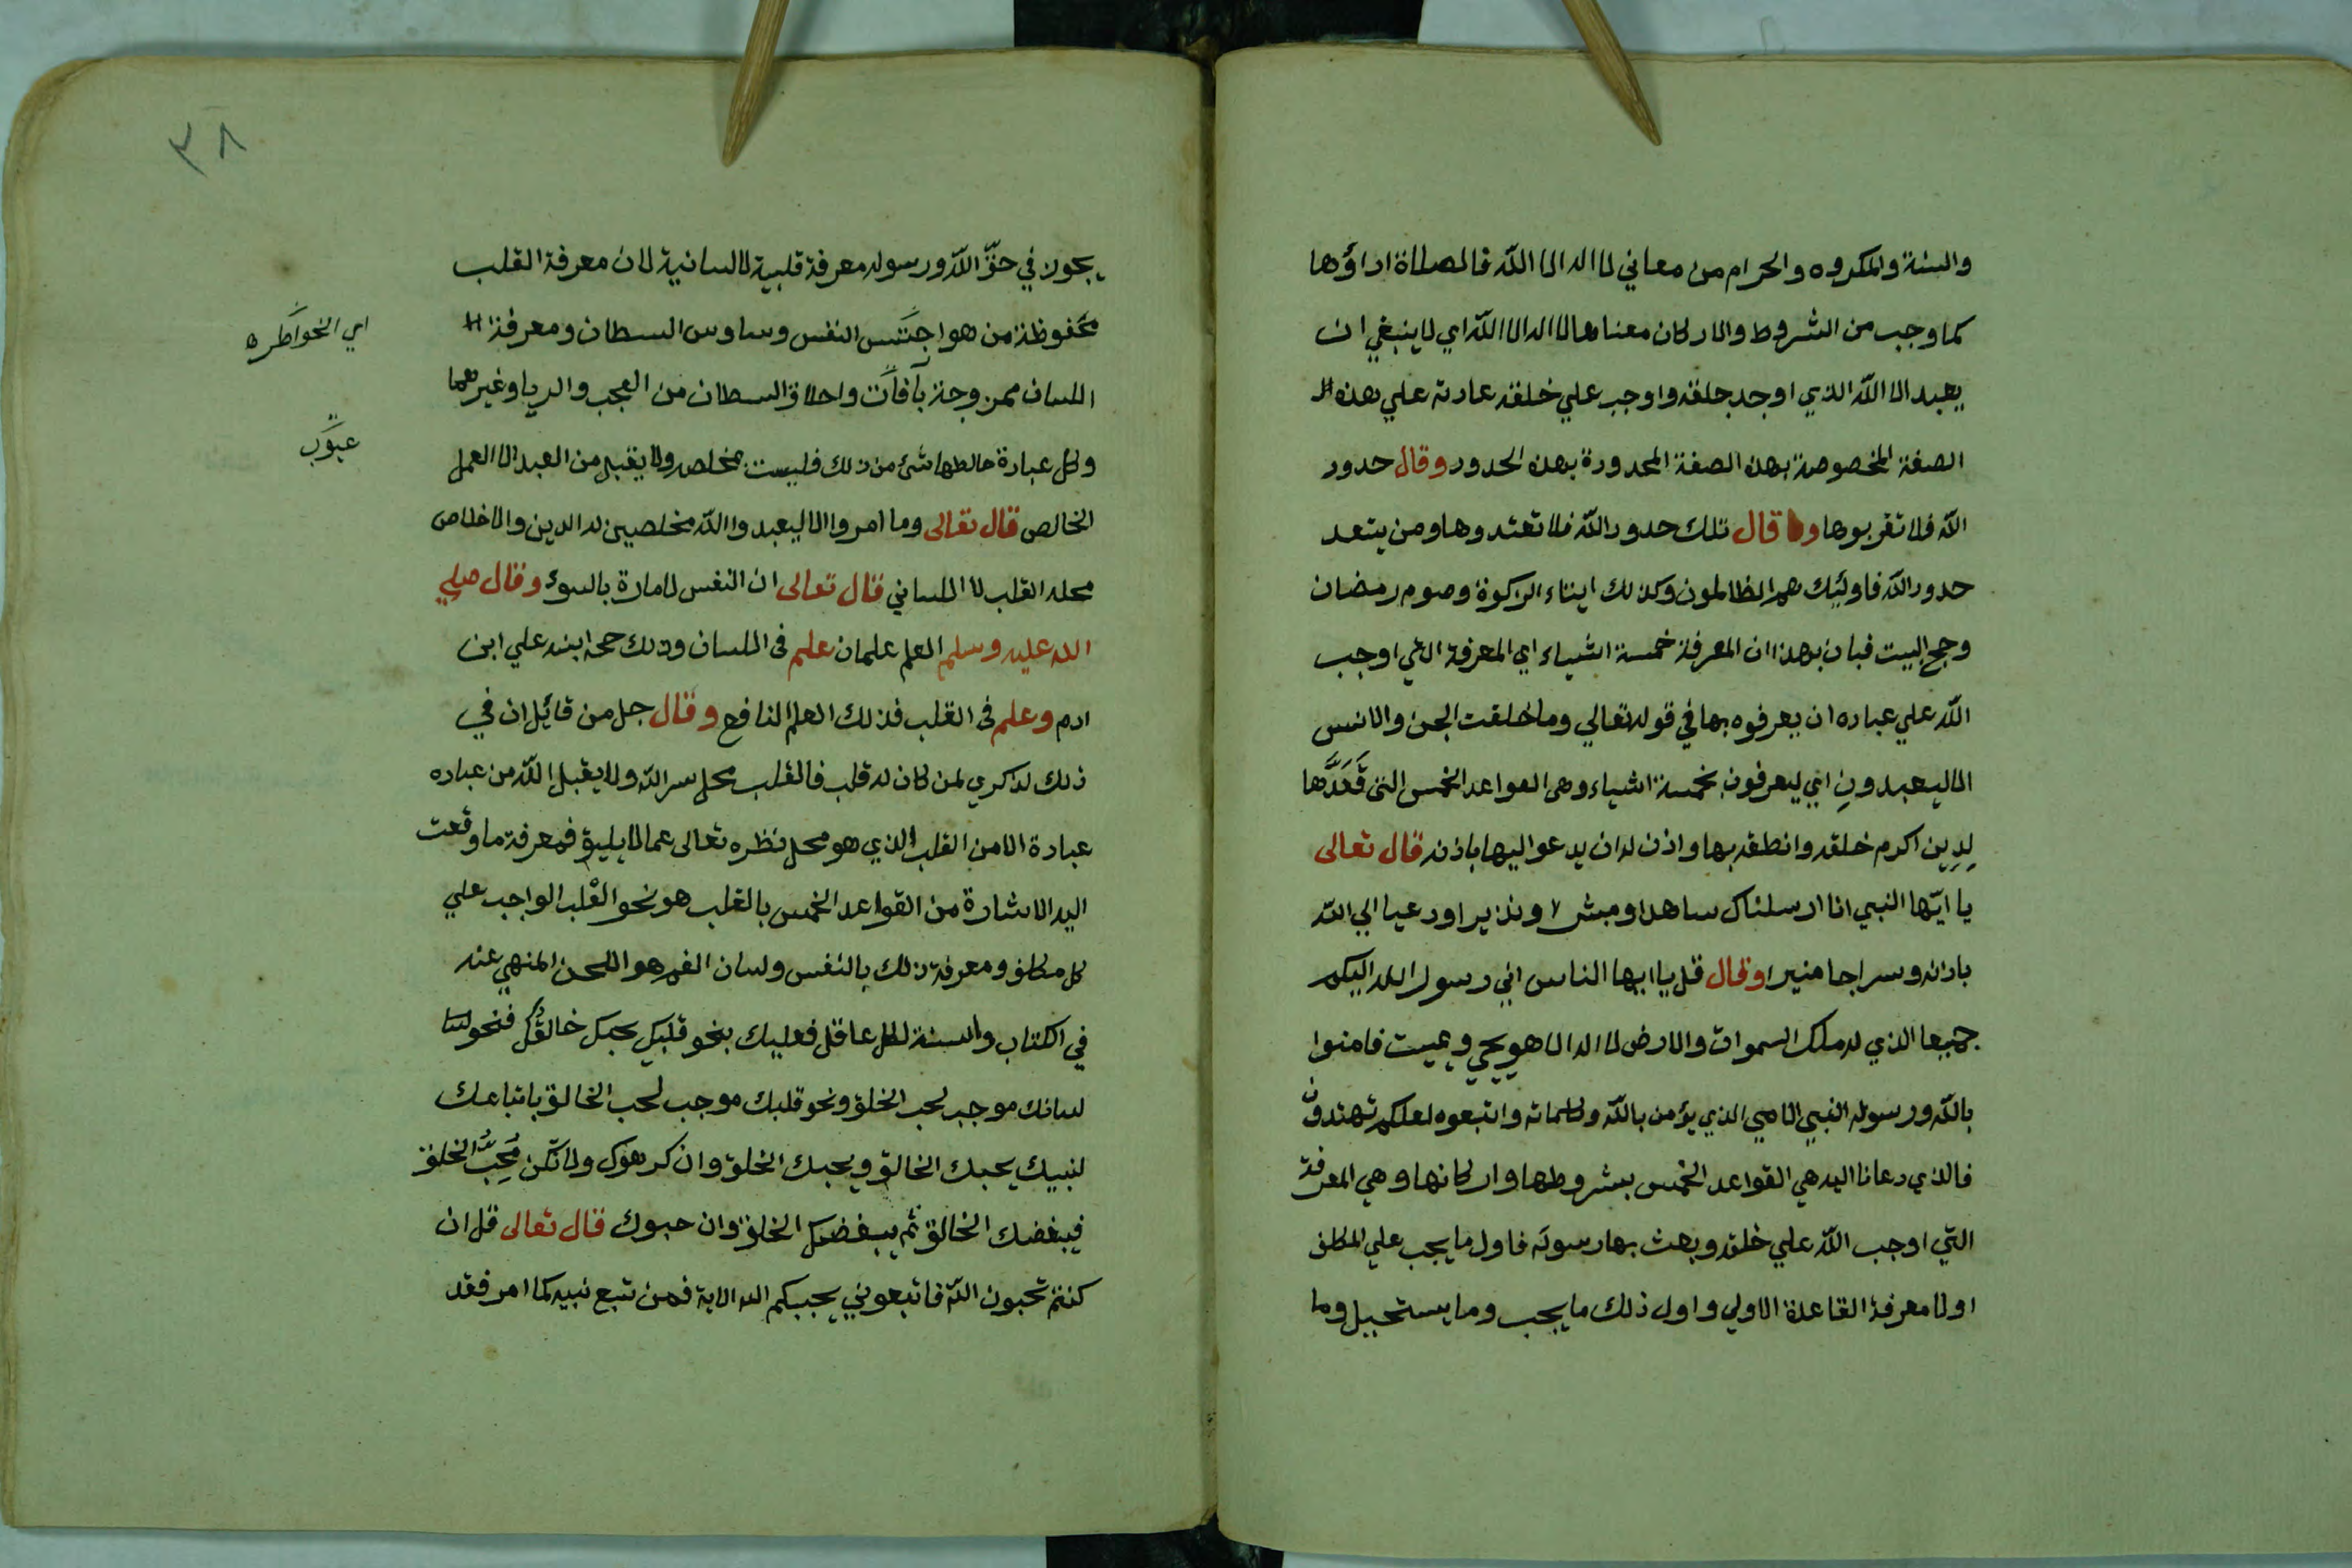 والسنة والمكروه والحرام من معاني لا اله الا الله فالصلاة اداؤها
كما وجب من الشروط والاركان معناها لا اله الا الله اي لا ينبغي ان
يعبد الا الله الذي اوجد خلقه واوجب علي خلقه عادته علي هذه الـ
الصفة المخصوصة بهذه الصفة المحدودة بهذه الحدود وقال حدود
الله فلا تقربوها وقال تلك حدود الله فلا تعتدوها ومن يتعد
حدود الله فاولئك هم الظالمون وكذلك ايتاء الزكوة وصوم رمضان
وحج البيت فبان بهذا ان المعرفة خمسة اشياء اي المعرفة التي اوجب
الله علي عباده ان يعرفوه بها في قوله تعالي وما خلقت الجن والانس
الا ليعبدونِ اي ليعرفون بخمسة اشياء وهي القواعد الخمس التي قَعَدَّها
لِدِين اكرم خلقه وانطقه بها واذن له ان يدعو اليها باذنه قال تعالى
يا ايّها النبي انا ارسلناك ساهدا ومبشرا ونذيرا ودعيا الي الله
باذنه وسراجا منيرا وقال قل يا ايها الناس اني رسول الله اليكم
جميعا الذي له ملك السموات والارض لا اله الا هو يحيي ويميت فامنوا
بالله ورسوله النبي الامي الذي يؤمن بالله وكلماته واتبعوه لعلكم تهتدون
فالذي دعانا اليه هي القواعد الخمس بشروطها واركانها وهي المعرفة
التي اوجب الله علي خلقه وبعث بها رسوله فاول ما يجب علي المكلف
اولا معرفة القاعدة الاولي واول ذلك ما يجب وما يستحيل وما
٣٨
يجوز في حقّ الله ورسوله معرفة قلبية لا لسانية لان معرفة القلب
محفوظة من هواجس النفس وساوس السطان ومعرفة الـ
اي الخواطره
اللسان ممزوجة بآفات واخلاق السطان من العجب والريا وغيرهما
وكل عبادة خالطها شئ من ذلك فليست بمخلصه ولا يقبل من العبد الا العمل
عيوب
الخالص قال تعالى وما امروا الا ليعبدوا الله مخلصين له الدين والاخلاص
محله القلب لا اللساني قال تعالى ان النفس لامارة بالسوء وقال صلي
الله عليه وسلم العلم علمان علم فى اللسان وذلك حجة ابنه علي ابن
ادم وعلم فى القلب فذلك العلم النافع وقال جل من قائل ان في
ذلك لذكري لمن كان له قلب فالقلب محل سر الله ولا يقبل الله من عباده
عبادة الا من القلب الذي هو محل نظره تعالى عما لا يليق فمعرفة ما وقعت
اليه الاشارة من القواعد الخمس بالقلب هو نحو القلب الواجب علي
كل مكلف ومعرفة ذلك بالنفس ولسان الفم هو اللحن المنهي عنه
في الكتاب والسنة لكل عاقل فعليك بنحو قلبك يحبك خالقُك فنحو
لسانك موجب لحب الخلق ونحو قلبك موجب لحب الخالق باتباعك
لنبيك يحبك الخالق ويحبك الخلق وان كرهوك ولا تكن مُحِبُّ الخلق
فيبغضك الخالق ثم يبغضك الخلق وان حبوك قال تعالى قل ان
كنتم تحبون الله فاتبعوني يحببكم الله الاية فمن تبع نبيه كما امر فقد